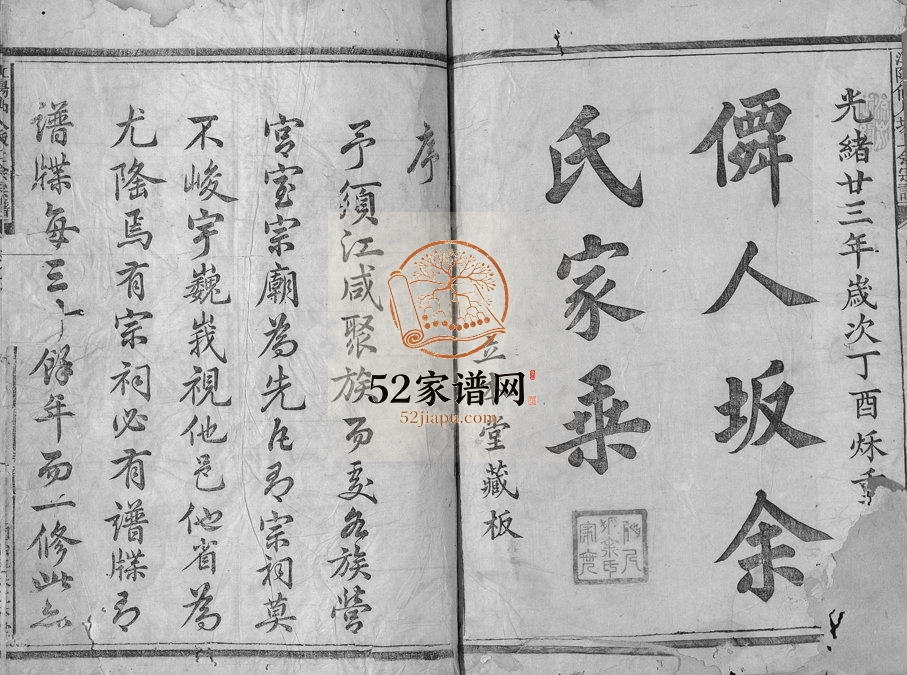 光緒廿三年歲次丁酉秌重
僲人坂余
氏家乗
堂藏板
序
予須江咸聚族而處各族營
宮室宗廟為先凡有宗祠莫
不峻宇巍峩視他邑他省為
尤隆焉有宗祠必有譜牒有
譜牒每三十餘年而一修此亦
52家谱网
52jiapu.com